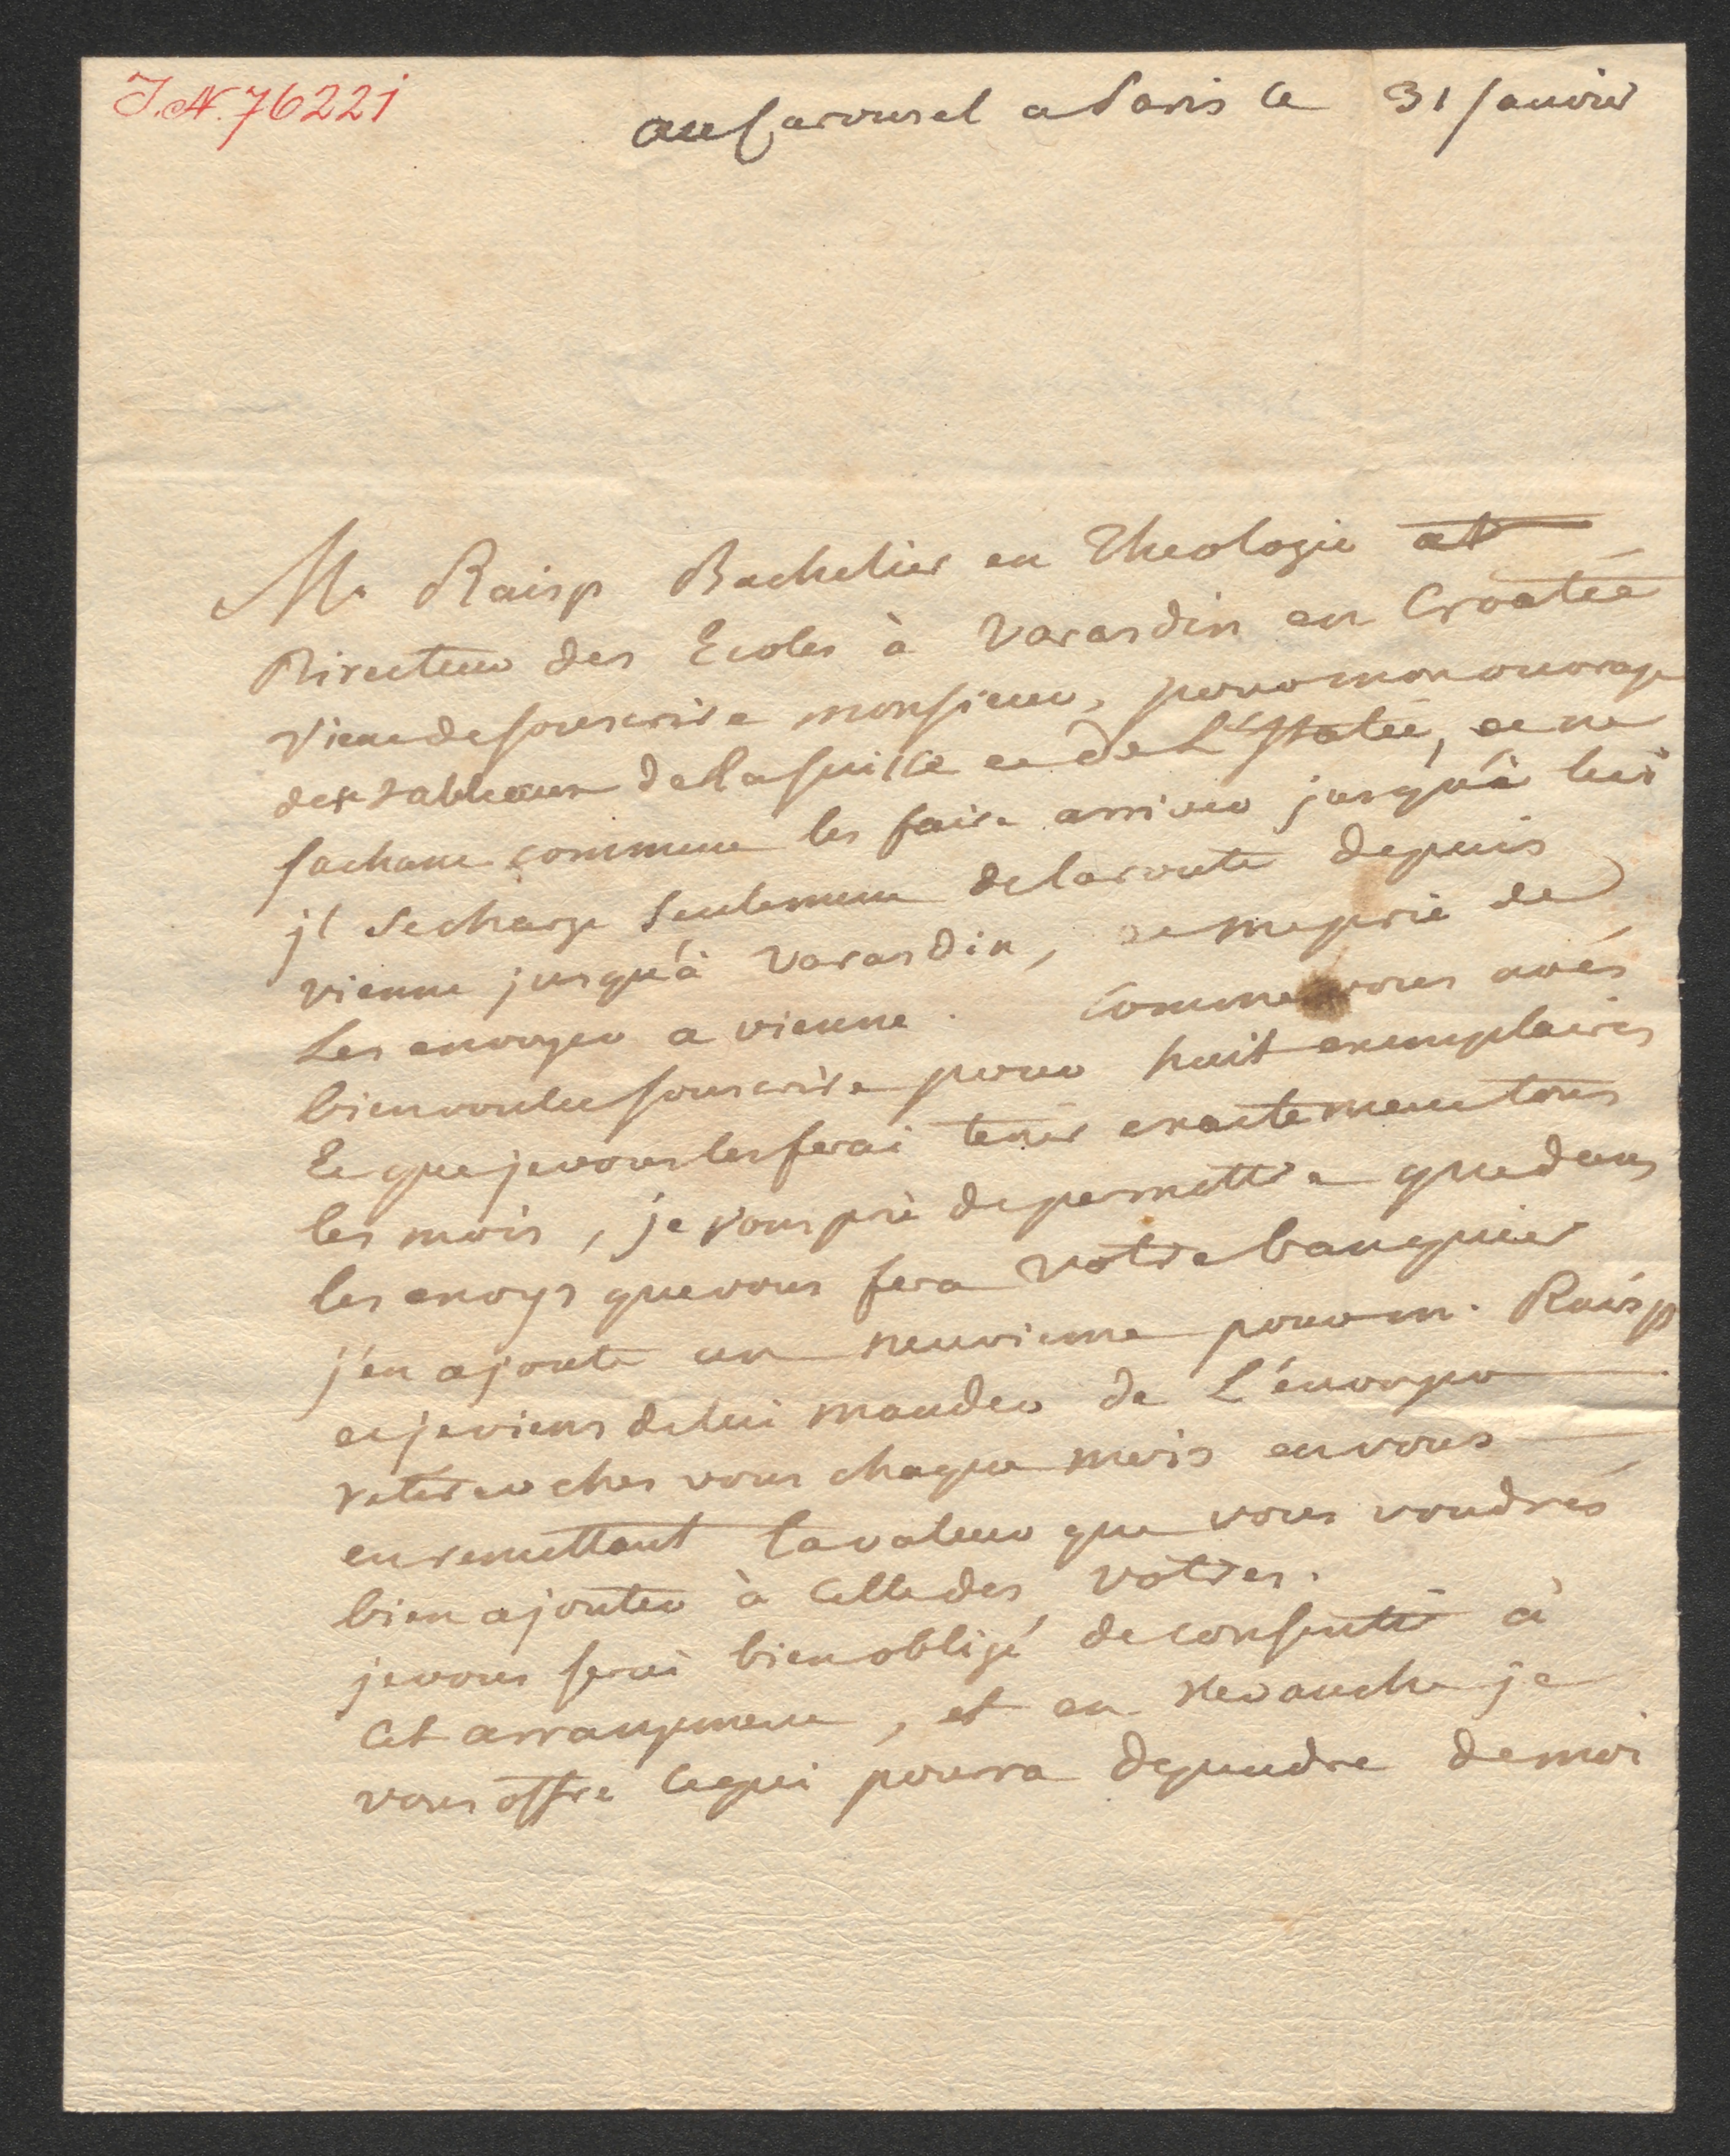 J.N. 76221
au Carousel a Paris le 31 janvier
Mr Raisp Bachelier en Theologie et
Directeur des Ecoles à Varasdin en Croatie
vient de souscrire monsieur, pour mon ouvrage
des tableaux de la suisse et de L'Italie, et ne
sachant comment les faire arriver jusqu'à lui
jl se charge seulement de la route depuis
vienne jusqu'à Varasdin, et me prie de
Les envoyer a vienne. Comme vous avés
bien voulu souscrire pour huit exemplaires
Et que je vous les ferai tenir exactement tous
les mois, je vous prie de permettre que dans
les envoys que vous fera votre banquier
j'en ajoute un neuvieme pour m. Raisp
et je viens de lui mander de L'envoyer
retirer ches vous chaque mois en vous
en remettant la valeur que vous voudrés
bien ajouter à celle des votres.
je vous serai bien obligé de consentir à
Cet arrangement, et en revanche je
vous offre ce qui pourra dependre de moi